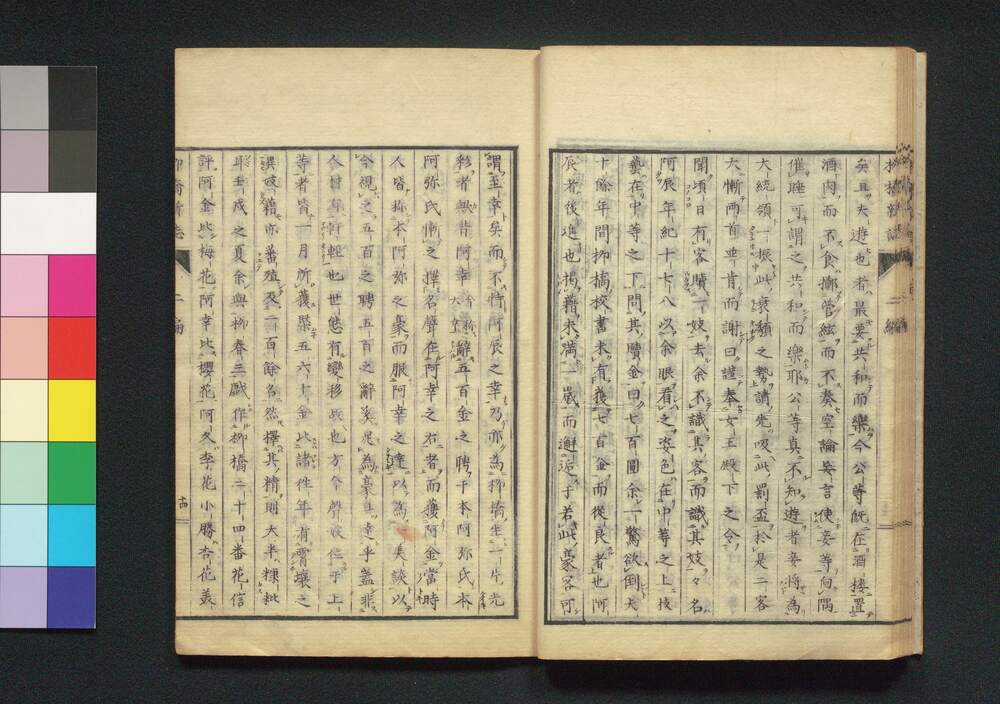 矣且夫遊也者最要共和而樂今公等既在酒楼置
酒肉而不食擲管絃而不奏空論妄言使妾等向隅
催睡可謂之共和而樂耶公等真不知遊者妾將為
大統領一振此衰頽之勢請先吸此罰盃於是二客
大慚両首並肯而謝曰謹奉女王殿下之令
聞頃日有客贖一妓去余不識其客而識其妓々名
阿辰年紀十七八以余眼看之姿色在中等之上技
藝在中等之下問其贖金曰七百圓余一驚欲倒夫
十餘年間柳橋校書未有獲七百金而從良者也阿
辰者後進也掲籍未満一歳而邂逅于若此豪客可
謂至幸矣而不特阿辰之幸乃亦為柳橋生一片光
彩者與昔阿幸辭五百金之聘于本阿弥氏本
阿弥氏慚之擇名聲在阿幸之右者而獲阿金當時
人皆称本阿弥之豪而服阿幸之達以為美談以
今視之五百之聘五百之辭奚足為豪且達乎蓋非
今世有軽也世態有變移故也方今聲妓位于上
等者皆一月所獲概五六十金比諸往年有霄壤之
異故籍亦蕃殖及二百餘名然擇其精則大半糠粃
耳壬戌之夏余與柳春三戯作柳橋二十四番花信
評阿金比梅花阿幸比櫻花阿久李花小勝杏花美
柳橋新誌
二編
十四